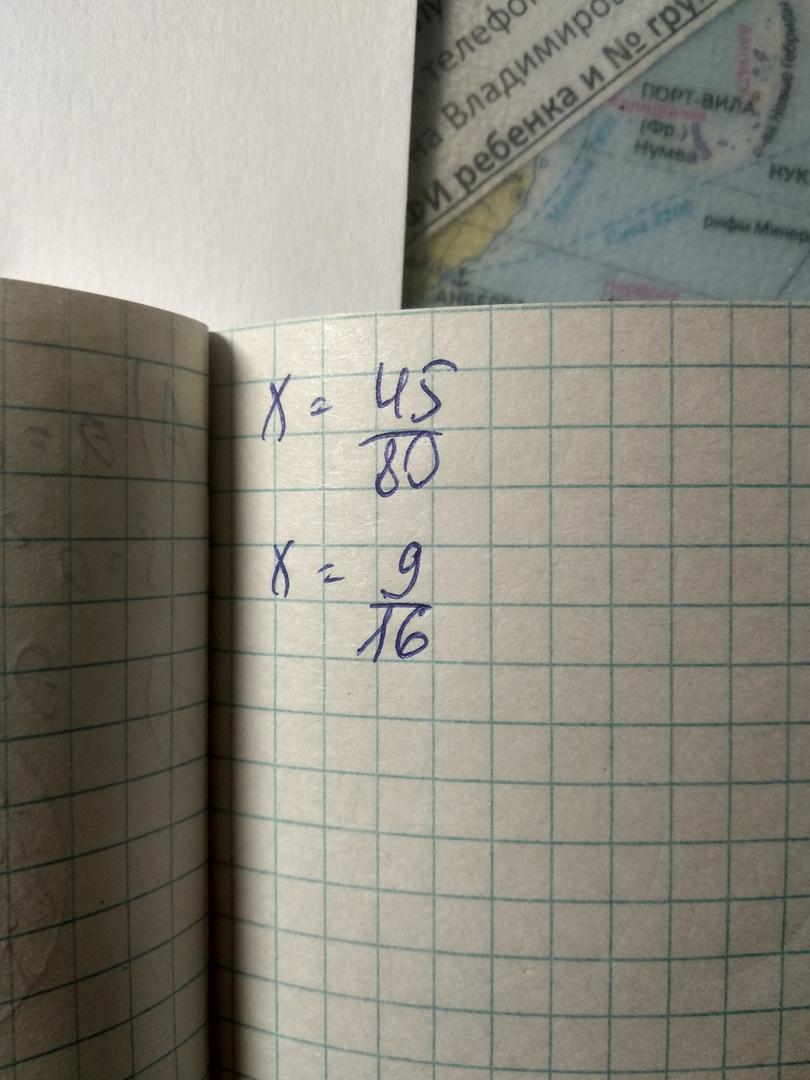 телефо
а Владимиров
ФИ ребенка и № гру
ПОРТ-ВИЛА
(Фр.)
Нумеа
НУК
рифы Минер
x = 45/80
x = 9/16